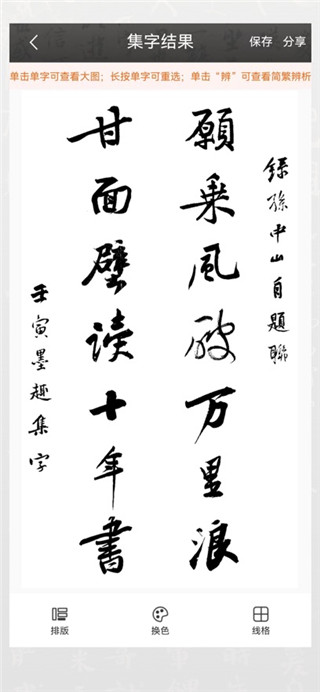 集字结果
保存 分享
单击单字可查看大图；长按单字可重选；单击“辨”可查看简繁辨析
錄孫中山自題聯
願乗風破万里浪
甘面壁读十年書
壬寅墨趣集字
排版
换色
线格